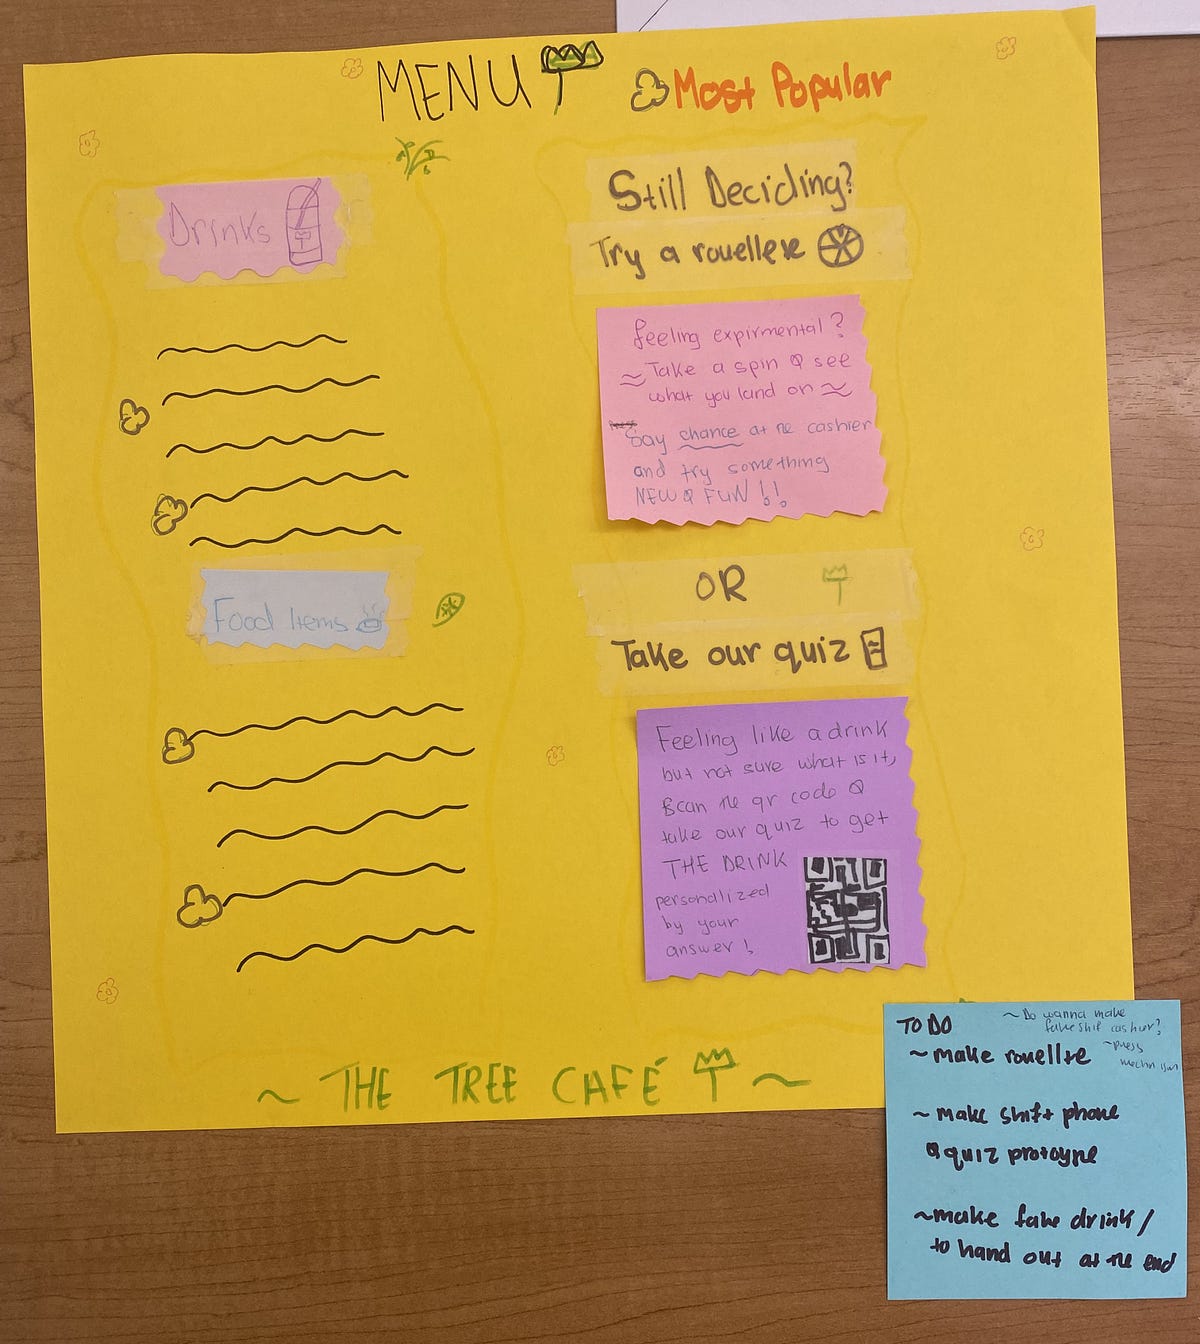 MENU
Most Popular
Drinks
Food Items
Still Deciding?
Try a rouellete
feeling expirmental?
Take a spin & see
what you land on
Say chance at the cashier
and try something
NEW & FUN !!
OR
Take our quiz
Feeling like a drink
but not sure what is it,
Scan the qr code &
take our quiz to get
THE DRINK
personalized
by your
answer!
~ THE TREE CAFÉ ~
TO DO
~ Do wanna make
cashier?
~ make rouellte
~ press
~ make shift phone
& quiz protoype
~ make fake drink/
to hand out at the end